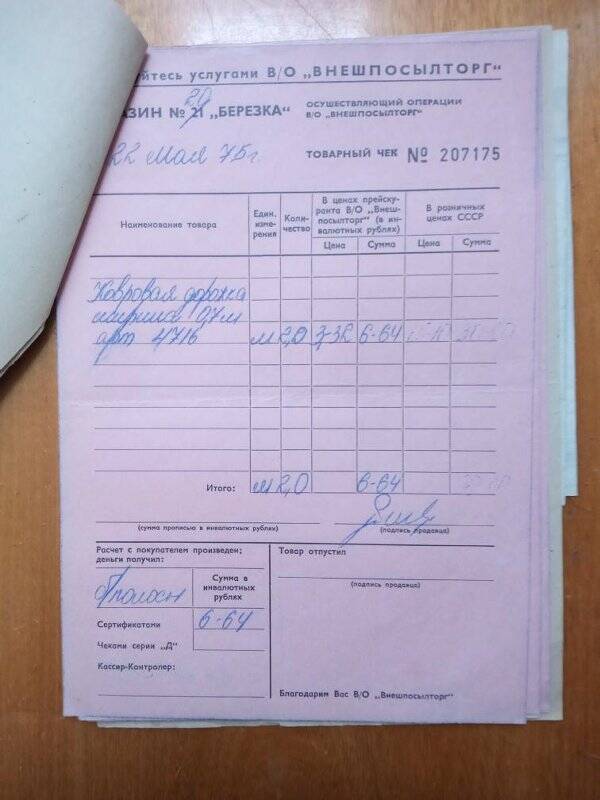 йтесь услугами В/О „ВНЕШПОСЫЛТОРГ“
АЗИН № 21 „БЕРЕЗКА“
ОСУЩЕСТВЛЯЮЩИЙ ОПЕРАЦИИ
В/О „ВНЕШПОСЫЛТОРГ“
22 мая 75 г.
ТОВАРНЫЙ ЧЕК № 207175
Наименование товара
Един. измерения
Количество
В ценах прейскуранта В/О „Внешпосылторг“ (в инвалютных рублях)
В розничных ценах СССР
Цена Сумма Цена Сумма
Ковровая дорожка
ширина 0,7 м
арт 4716 м 2,0 3-32 6-64
Итого: м 2,0 6-64
(сумма прописью в инвалютных рублях)
(подпись продавца)
Расчет с покупателем произведен;
деньги получил:
Сумма в инвалютных рублях
Сертификатами 6-64
Чеками серии „Д“
Кассир-Контролер:
Товар отпустил
(подпись продавца)
Благодарим Вас В/О „Внешпосылторг“